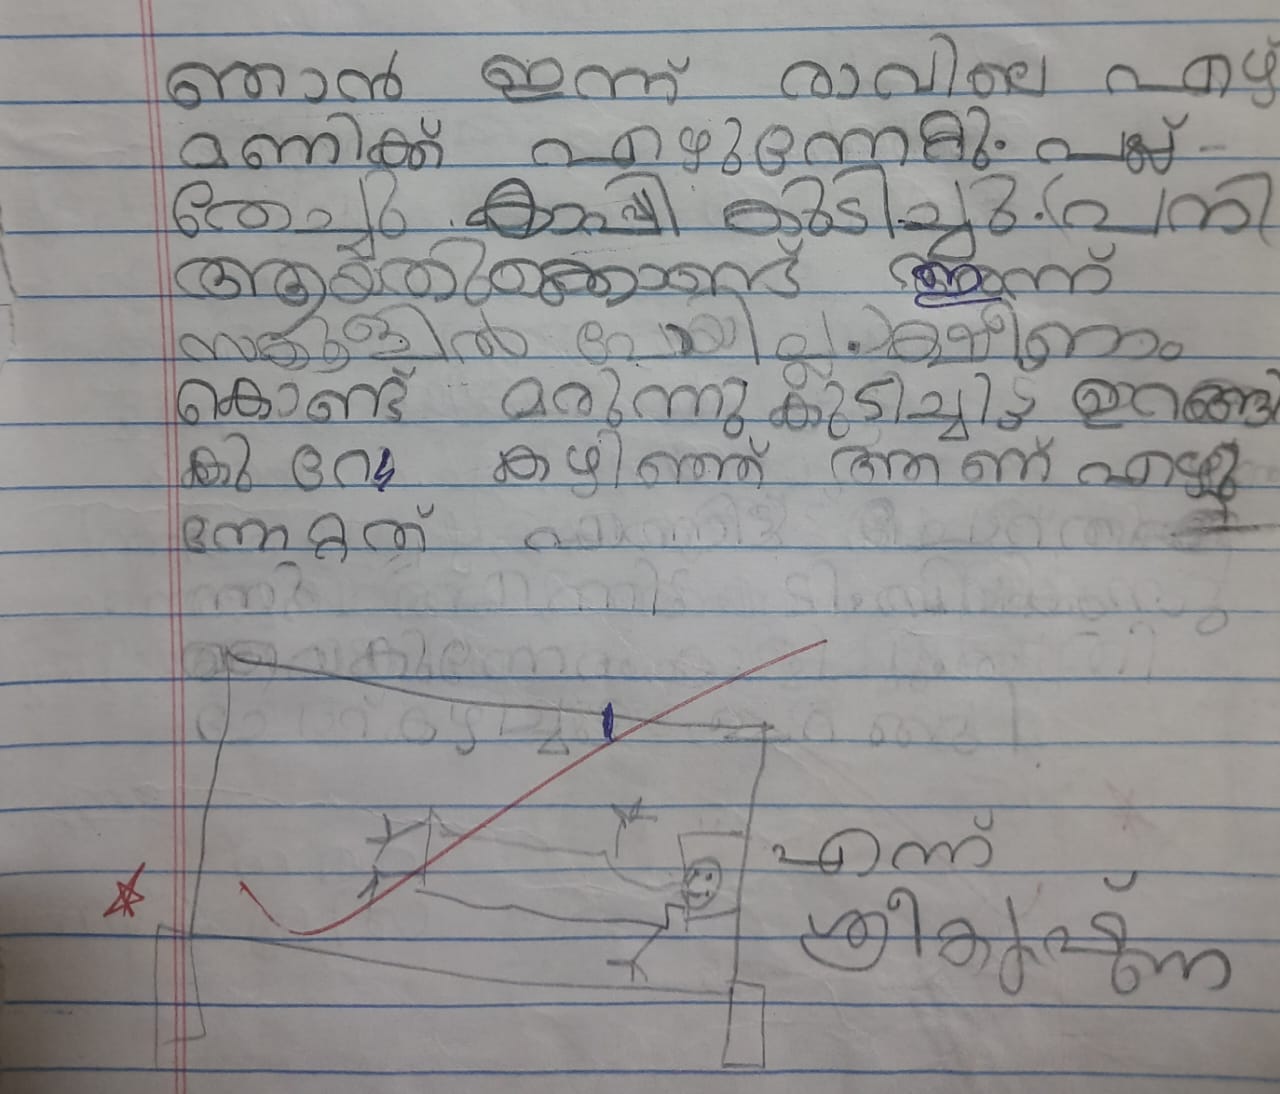 ഞാൻ ഇന്ന് രാവിലെ ഏഴ്
മണിക്ക് എഴുന്നേറ്റു. പല്ല്
തേച്ചു. കാപ്പി കുടിച്ചു. പനി
ആയതുകൊണ്ട് ഇന്ന്
സ്കൂളിൽ പോയില്ല. ക്ഷീണം
കൊണ്ട് മരുന്നു കുടിച്ചിട്ട് ഉറങ്ങി
കുറേ കഴിഞ്ഞ് ആണ് എഴു
ന്നേറ്റത്
എന്ന്
ശ്രീകൃഷ്ണ